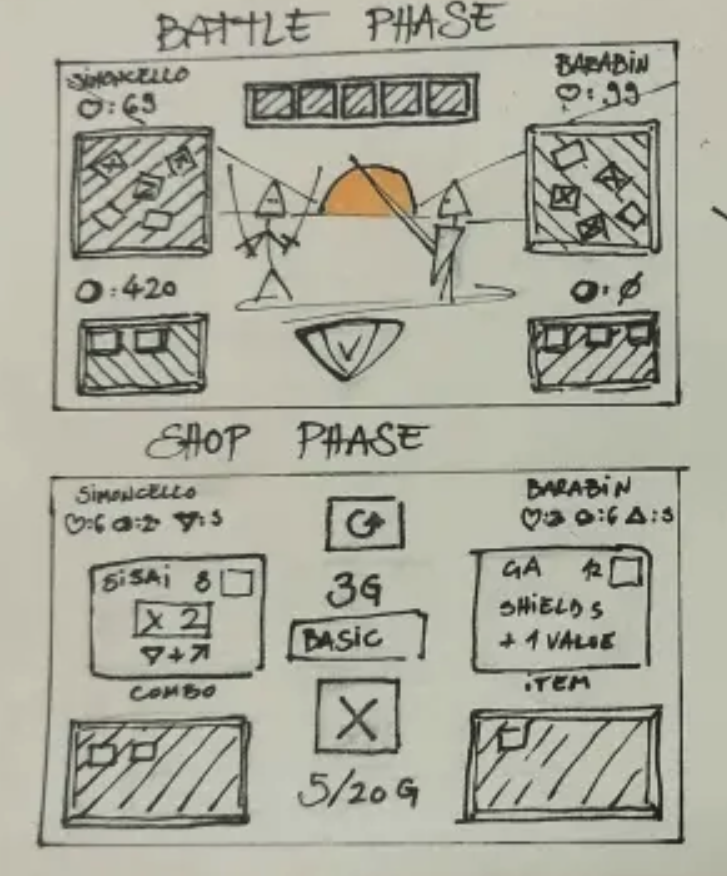 BATTLE PHASE
SIMONCELLO
♡: 69
BARABIN
♡: 99
O: 420
O: Ø
V
SHOP PHASE
SIMONCELLO
♡:6
BARABIN
O:6 Δ:3
SISAI 8
X 2
▽+↗
COMBO
3G
BASIC
X
5/20 G
GA 12
SHIELDS
+ 1 VALUE
ITEM